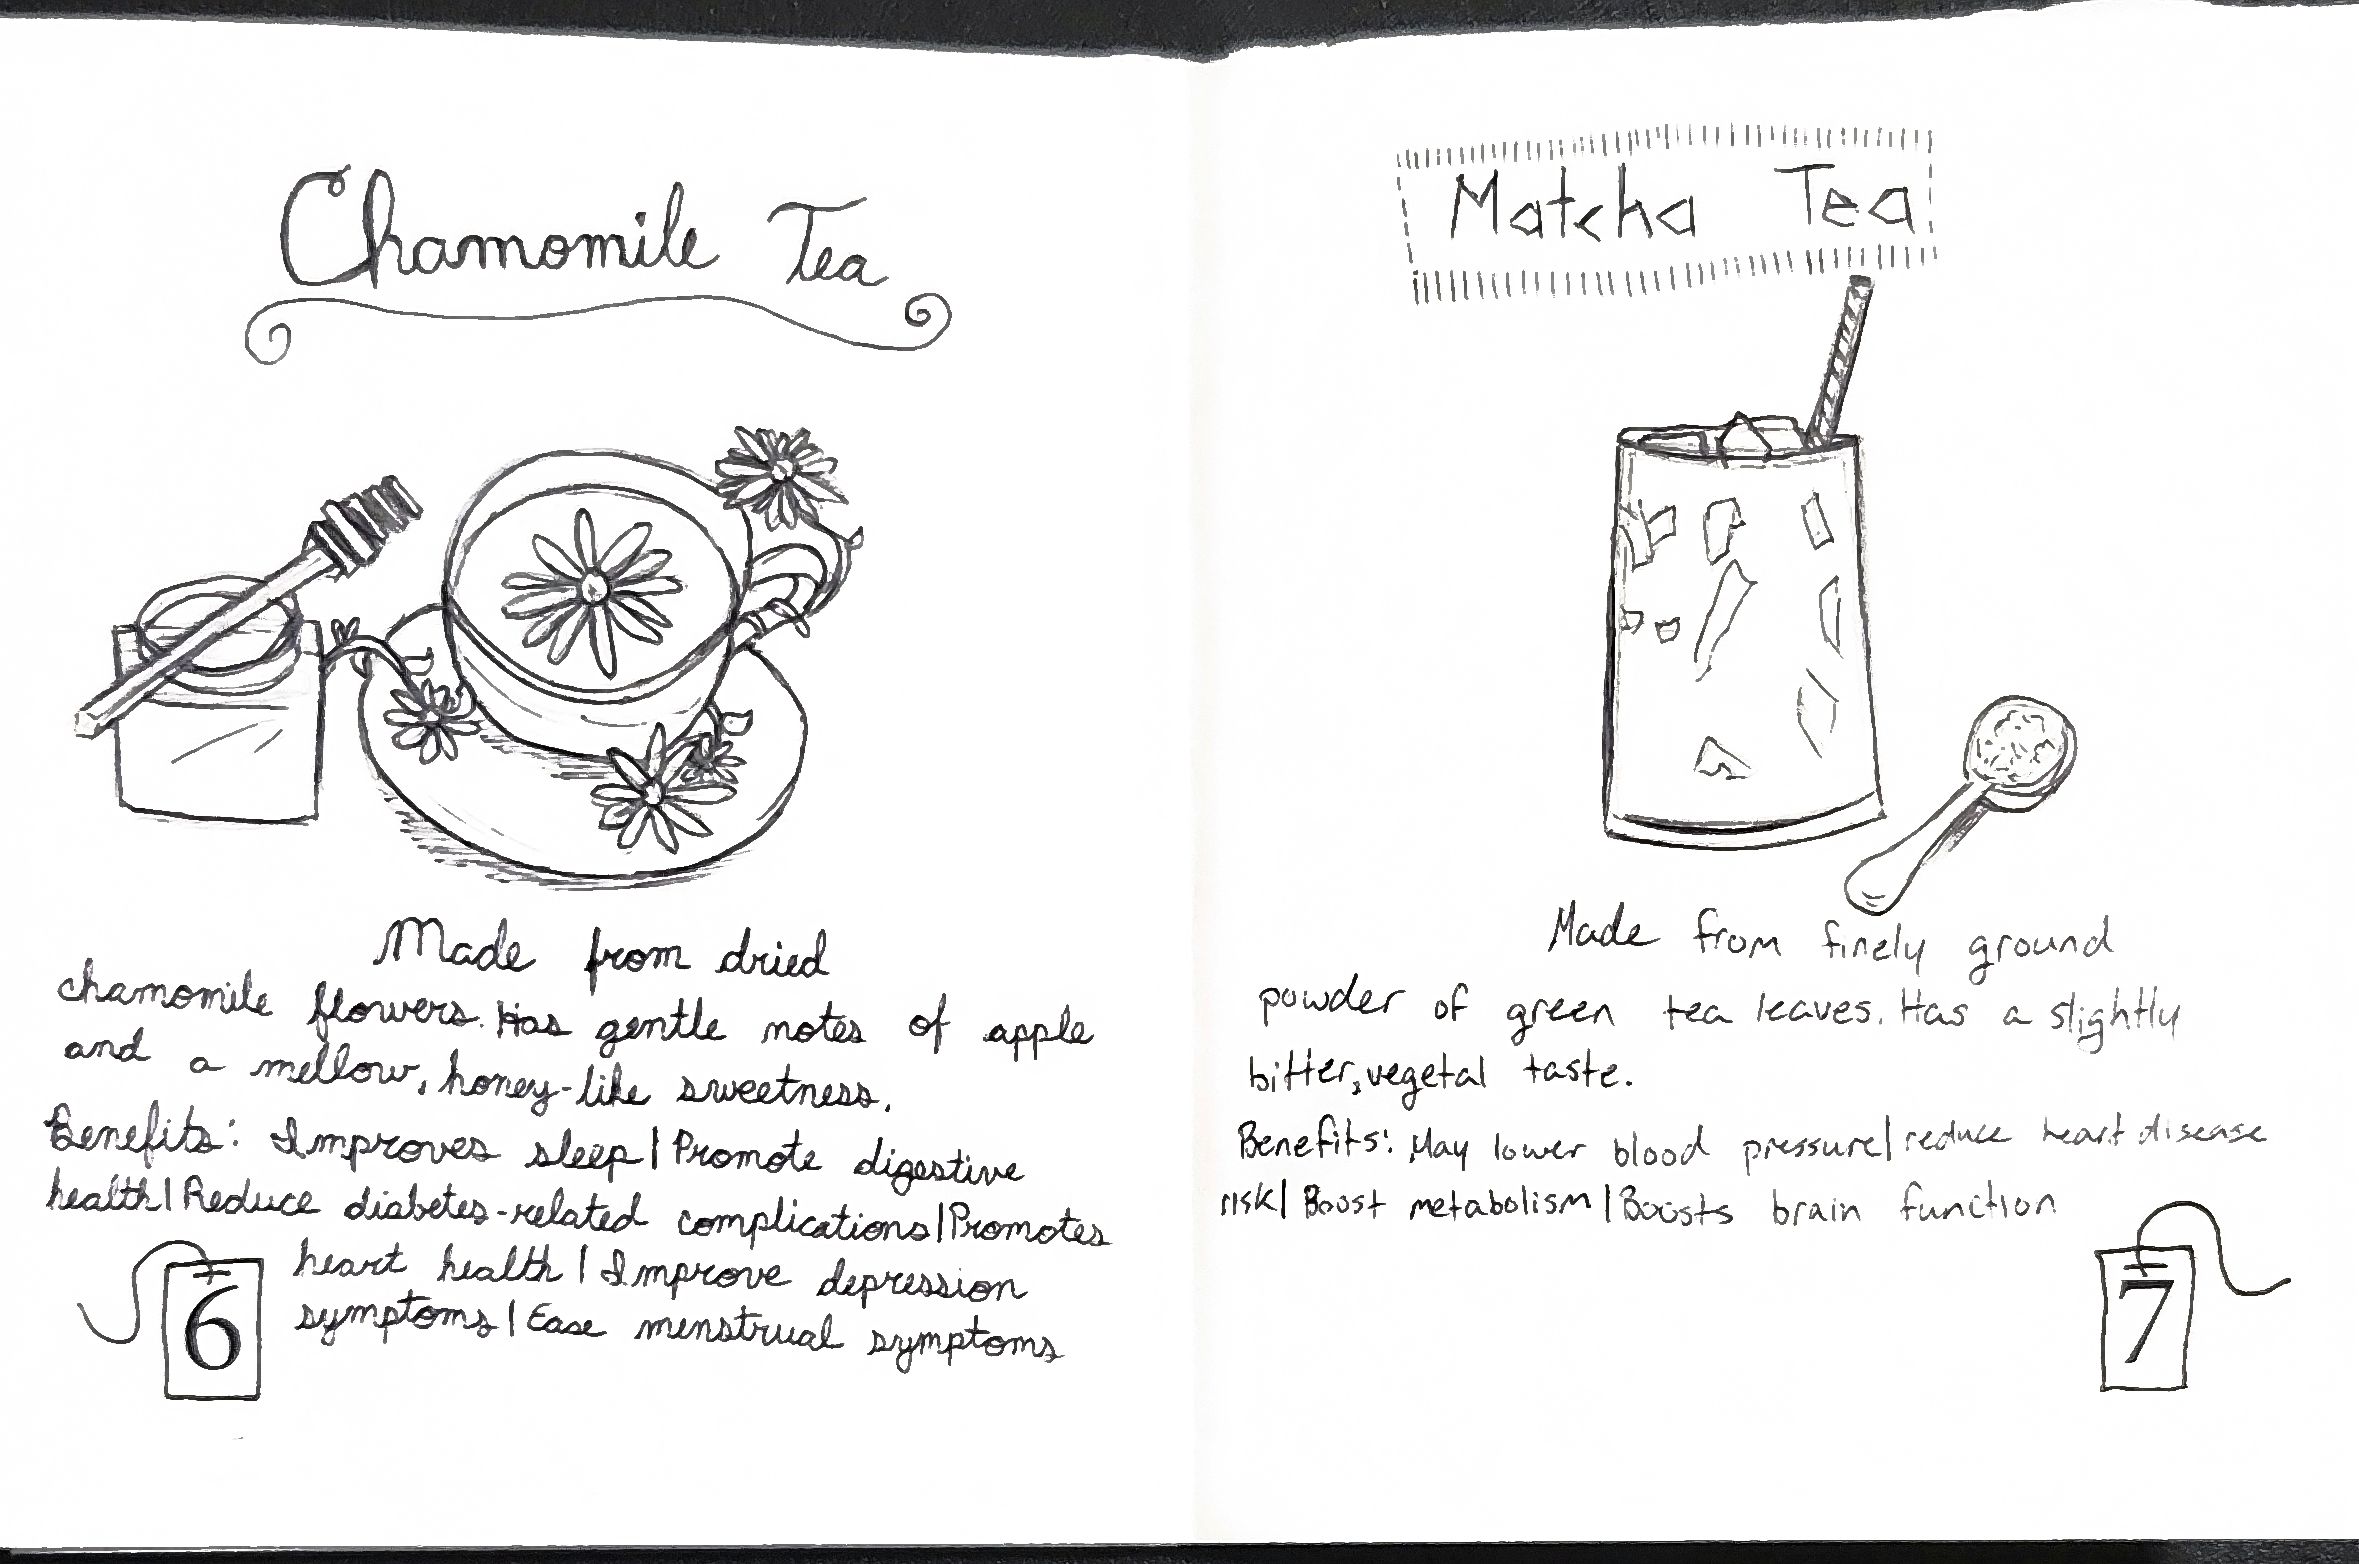 Chamomile Tea
Made from dried
chamomile flowers. Has gentle notes of apple
and a mellow, honey-like sweetness.
Benefits: Improves sleep | Promote digestive
health | Reduce diabetes-related complications | Promotes
heart health | Improve depression
symptoms | Ease menstrual symptoms
6
Matcha Tea
Made from finely ground
powder of green tea leaves. Has a slightly
bitter, vegetal taste.
Benefits: May lower blood pressure | reduce heart disease
risk | Boost metabolism | Boosts brain function
7